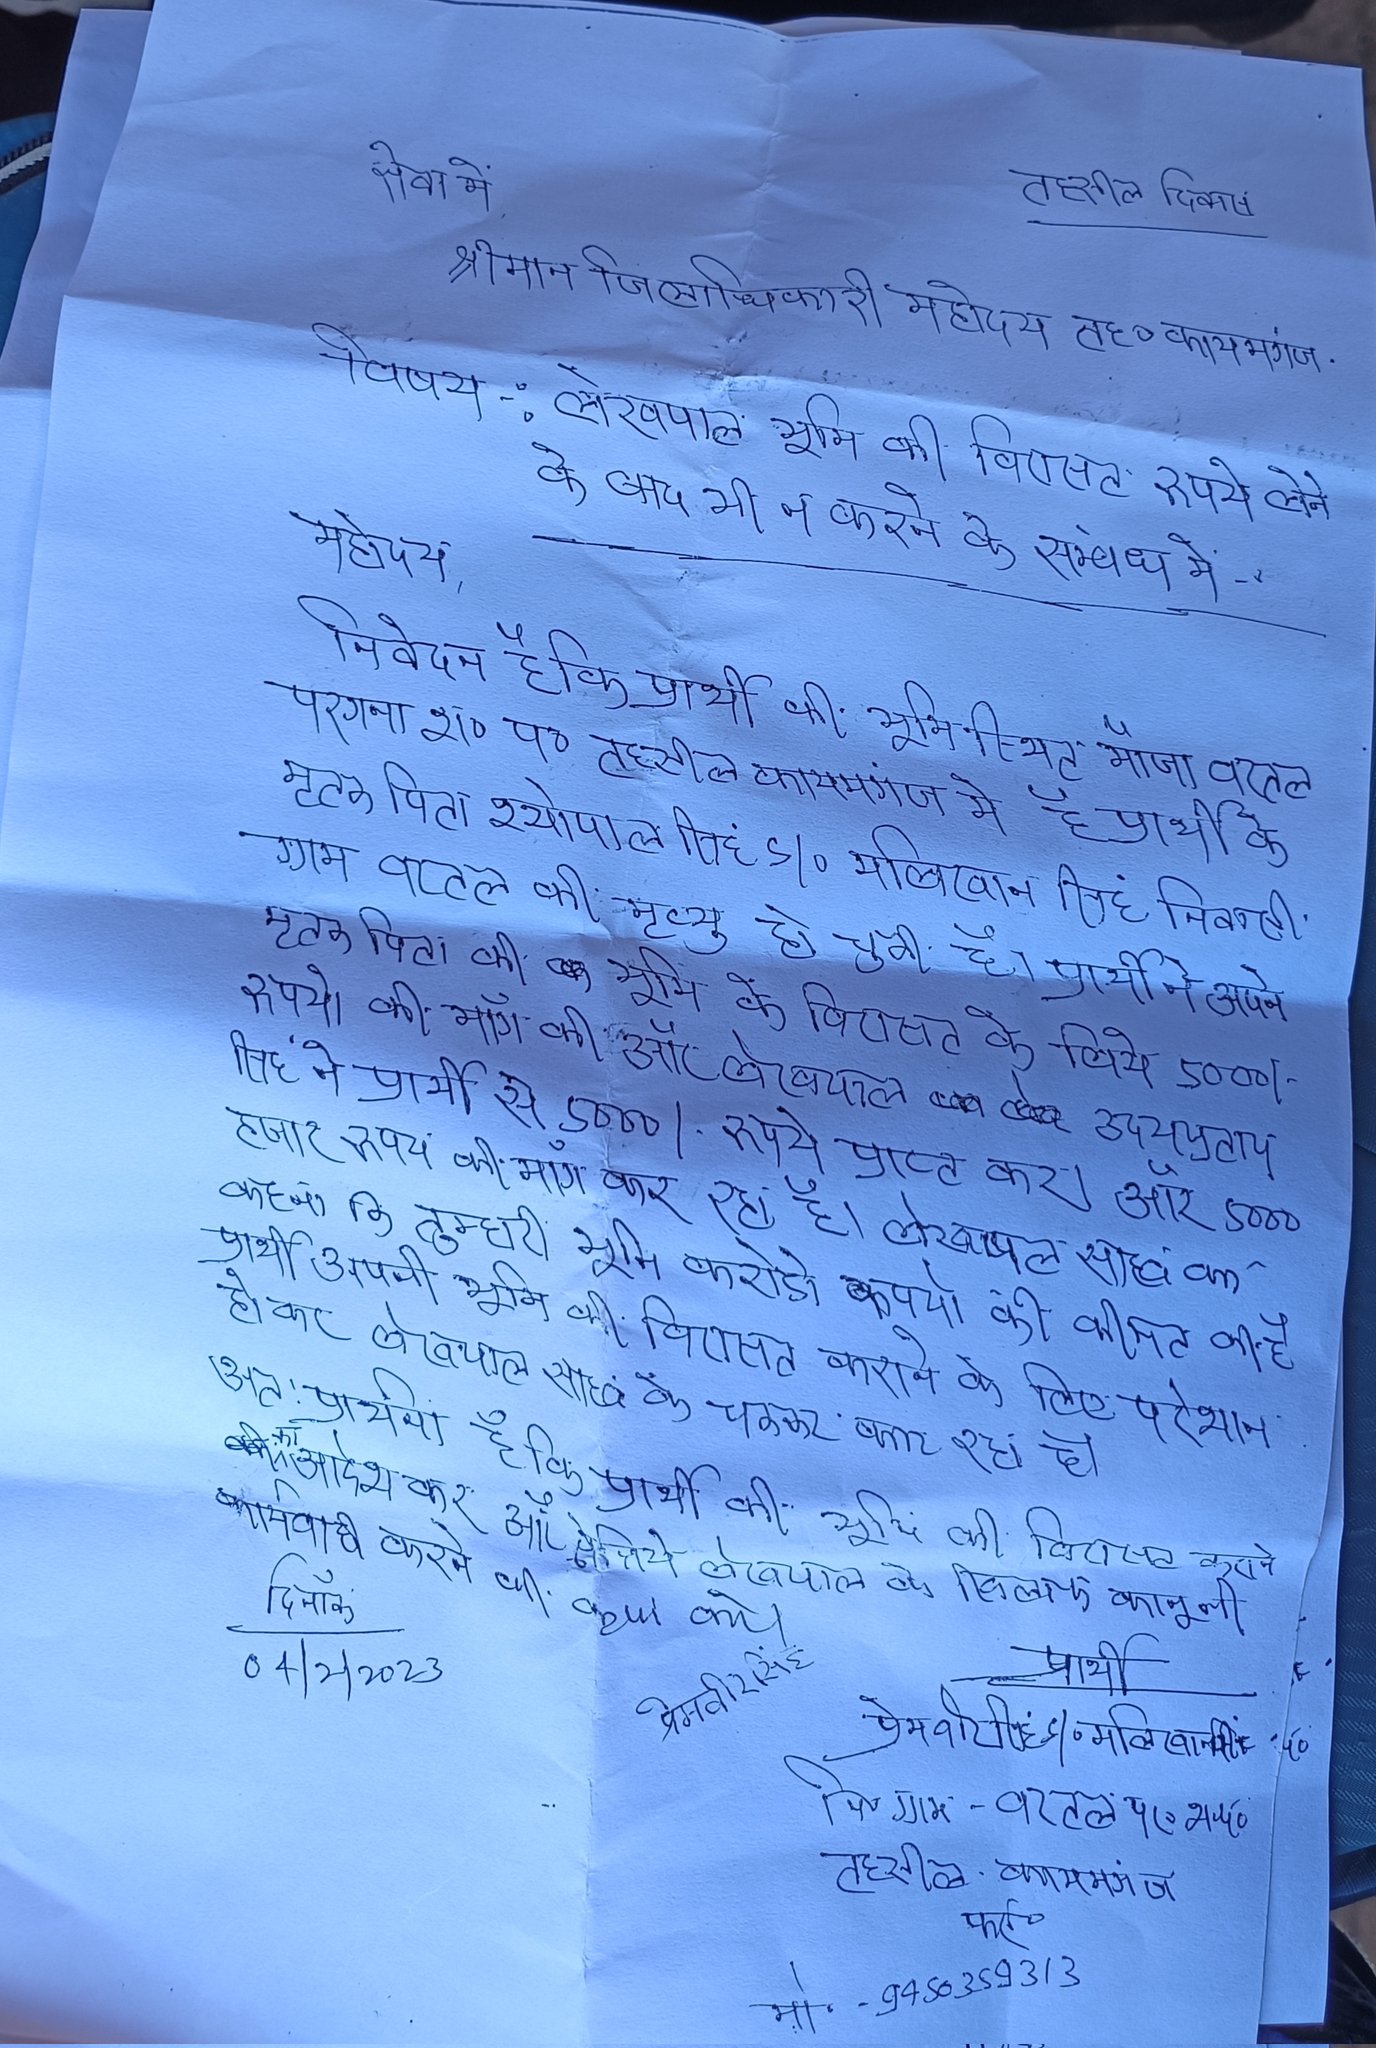 सेवा में,
तहसील दिवस
श्रीमान जिलाधिकारी महोदय तह० कायमगंज.
विषय -: लेखपाल भूमि की विरासत रूपये लेने
के बाद भी न करने के सम्बंध में -:
महोदय,
निवेदन है कि प्रार्थी की भूमि स्थित मौजा वरतल
परगना श० प० तहसील कायमगंज मे है प्रार्थी के
मृतक पिता श्योपाल सिहं S/० मलिखान सिहं निवासी
ग्राम वरतल की मृत्यु हो चुकी है। प्रार्थी ने अपने
मृतक पिता की भूमि के विरासत के लिये 5000/-
रूपयो की माँग की और लेखपाल उदयप्रताप
सिहं ने प्रार्थी से 5000/. रूपये प्राप्त कर। और 5000
हजार रूपय की माँग कर रहा है। लेखपाल साहब का
कहना कि तुम्हारी भूमि करोडो रूपयो की कीमत की है
प्रार्थी अपनी भूमि की विरासत कराने के लिए परेशान
होकर लेखपाल साहब के चक्कर काट रहा हो
अतः प्रार्थना है कि प्रार्थी की भूमि की विरासत कराने
का आदेश कर और लेखपाल के खिलाफ कानूनी
कार्यवाही करने की कृपा करे।
दिनाँक
04/2/2023
प्रेमवीर सिंह
प्रार्थी
प्रेमवीर सिहं S/० मलिखान सिंह
नि० ग्राम - वरतल
तहसील. कायमगंज
फर्रु०
मो. - 9450359313